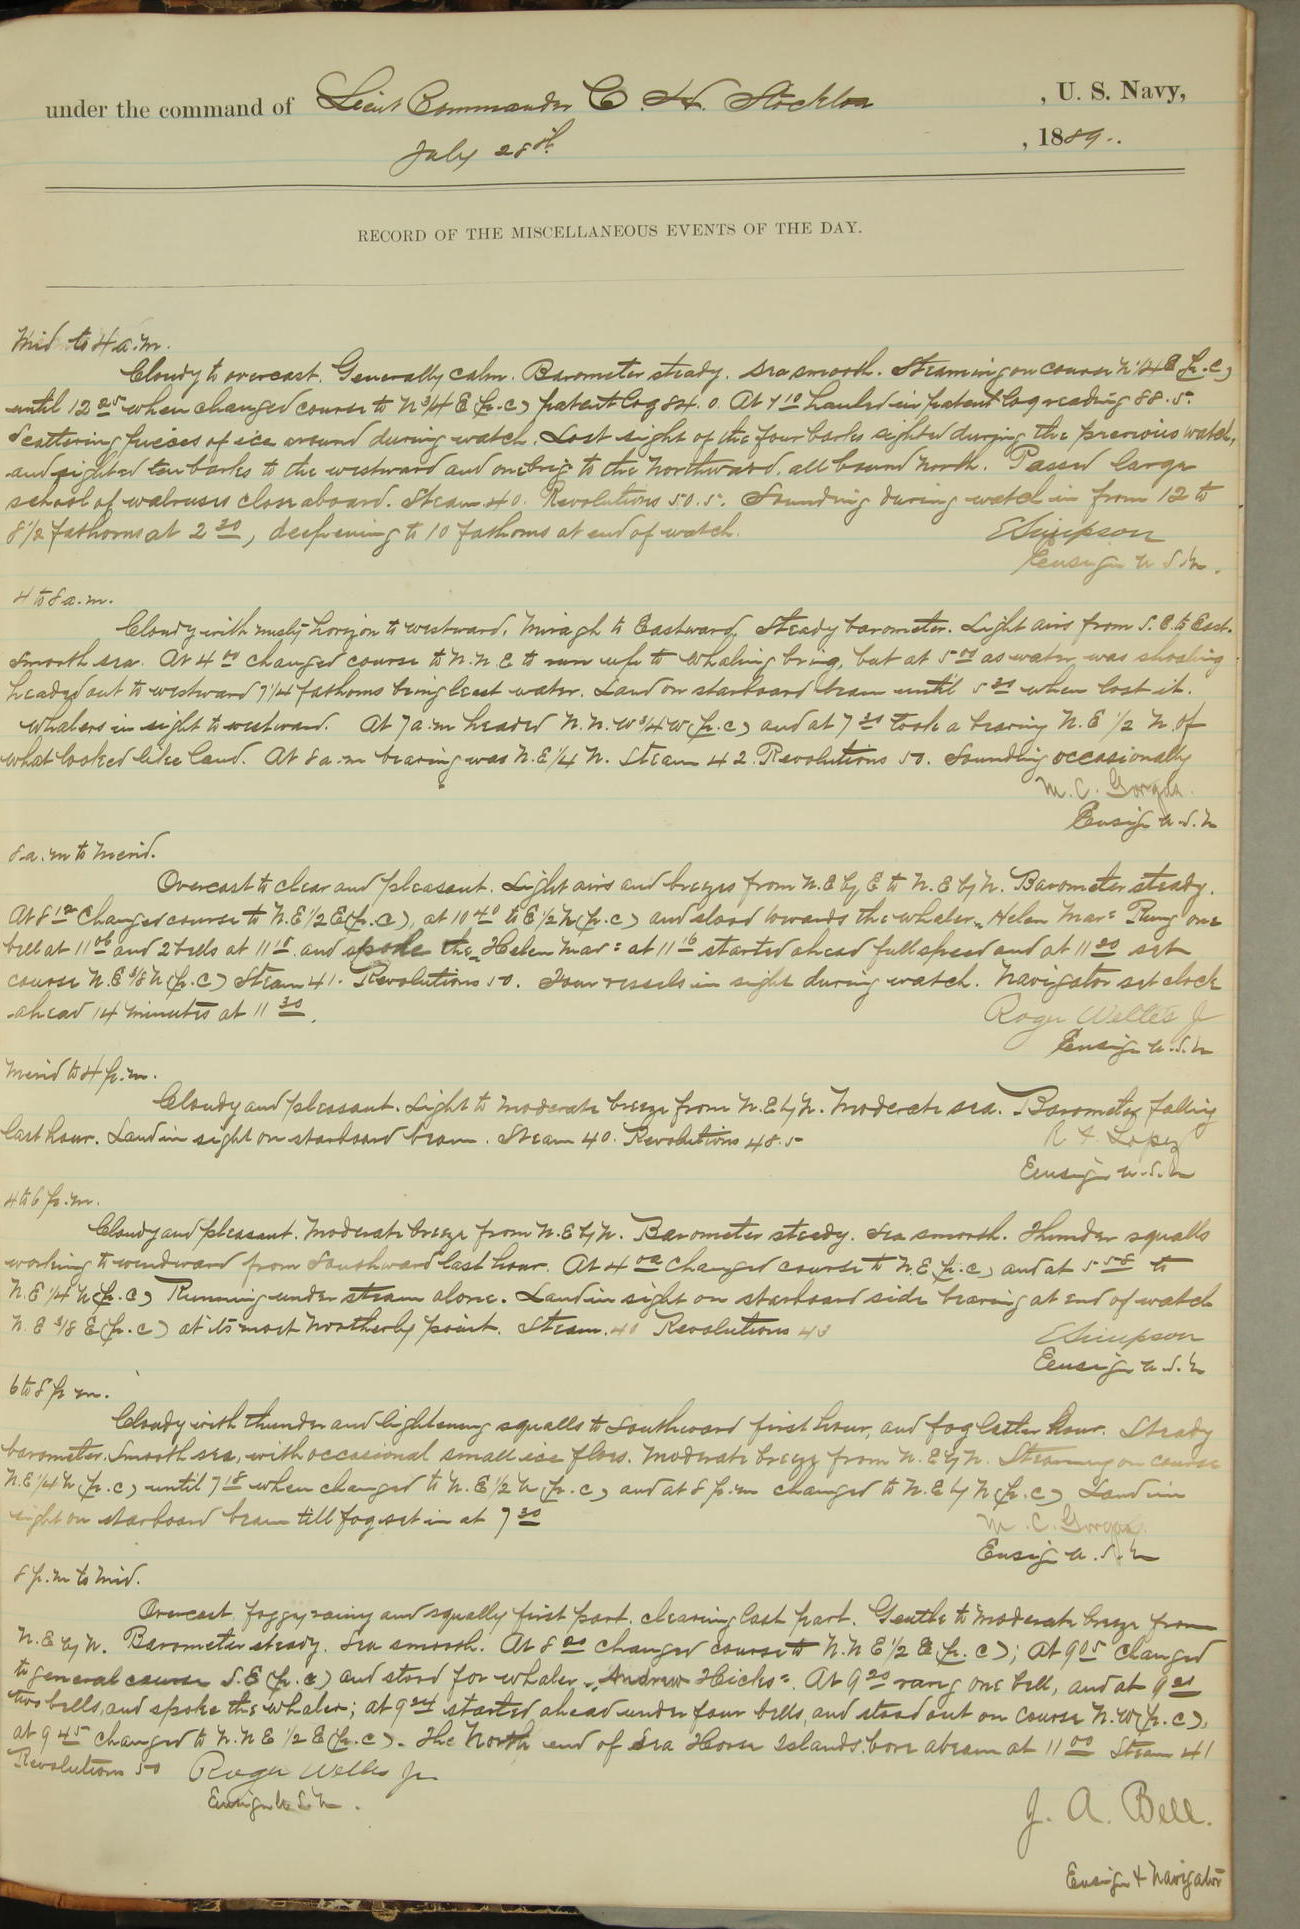 under the command of Lieut Commander C. H. Stockton, U. S. Navy,
July 28th, 1889.
RECORD OF THE MISCELLANEOUS EVENTS OF THE DAY.
Mid to 4 a.m.
Cloudy to overcast. Generally calm. Barometer steady. Sea smooth. Steaming on course N 1/4 E (p.c)
until 12 25 when changed course to N 3/4 E (p.c) patent log 84.0. At 1 10 hauled in patent log reading 88.5.
Scattering pieces of ice around during watch. Lost sight of the four barks sighted during the previous watch,
and sighted ten barks to the westward and one brig to the Northward, all bound North. Passed large
school of walruses close aboard. Steam 40. Revolutions 50.5. Sounding during watch in from 12 to
8 1/2 fathoms at 2 30, deepening to 10 fathoms at end of watch.
E Simpson
Ensign U.S.N.
4 to 8 a.m.
Cloudy with misty horizon to westward. Miragh to Eastward. Steady barometer. Light airs from S.E. to East.
Smooth sea. At 4 00 changed course to N.N.E to run up to whaling brig, but at 5 00 as water was shoaling
headed out to westward 7 1/4 fathoms being least water. Land on starboard beam until 5 30 when lost it.
Whalers in sight to westward. At 7 a.m headed N.N.W 3/4 W (p.c) and at 7 30 took a bearing N.E 1/2 N. of
what looked like land. At 8 a.m bearing was N.E 1/4 N. Steam 42. Revolutions 50. Sounding occasionally
M. C. Gorgas.
Ensign U.S.N
8 a.m to Merid.
Overcast to clear and pleasant. Light airs and breezes from N.E by E to N.E by N. Barometer steady.
At 8 10 changed course to N.E 1/2 E (p.c), at 10 40 to E 1/2 N (p.c) and stood towards the whaler "Helen Mar" Rung one
bell at 11 06 and 2 bells at 11 15 and spoke the "Helen Mar" at 11 16 started ahead full speed and at 11 20 set
course N.E 3/8 N (p.c) Steam 41. Revolutions 50. Four vessels in sight during watch. Navigator set clock
ahead 14 minutes at 11 30.
Roger Welles Jr
Ensign U.S.N
Merid to 4 p.m.
Cloudy and pleasant. Light to moderate breeze from N.E by N. Moderate sea. Barometer falling
last hour. Land in sight on starboard beam. Steam 40. Revolutions 48.5
R F Lopez
Ensign U.S.N
4 to 6 p.m.
Cloudy and pleasant. Moderate breeze from N.E by N. Barometer steady. Sea smooth. Thunder squalls
working to windward from Southward last hour. At 4 00 changed course to N.E (p.c) and at 5 58 to
N.E 1/4 N (p.c) Running under steam alone. Land in sight on starboard side bearing at end of watch
N.E 3/8 E (p.c) at its most Northerly point. Steam 40 Revolutions 43
E Simpson
Ensign U.S.N
6 to 8 p.m.
Cloudy with thunder and lightening squalls to Southward first hour, and fog latter hour. Steady
barometer. Smooth sea, with occasional small ice floes. Moderate breeze from N.E by N. Steaming on course
N.E 1/4 N (p.c) until 7 18 when changed to N.E 1/2 N (p.c) and at 8 p.m changed to N.E by N (p.c) Land in
sight on starboard beam till fog set in at 7 30
M. C. Gorgas.
Ensign U.S.N
8 p.m to mid.
Overcast, foggy rainy and squally first part, clearing last part. Gentle to moderate breeze from
N.E by N. Barometer steady. Sea smooth. At 8 20 changed course to N.N E 1/2 E (p.c); At 9 05 changed
to general course S.E (p.c) and stood for whaler "Andrew Hicks". At 9 20 rang one bell, and at 9 21
two bells, and spoke the whaler; at 9 24 started ahead under four bells, and stood out on course N.W (p.c),
at 9 45 changed to N.N E 1/2 E (p.c). The North end of Sea Horse Islands bore abeam at 11 00 Steam 41
Revolutions 50 Roger Welles Jr.
Ensign U.S.N.
J. A. Bell.
Ensign & Navigator